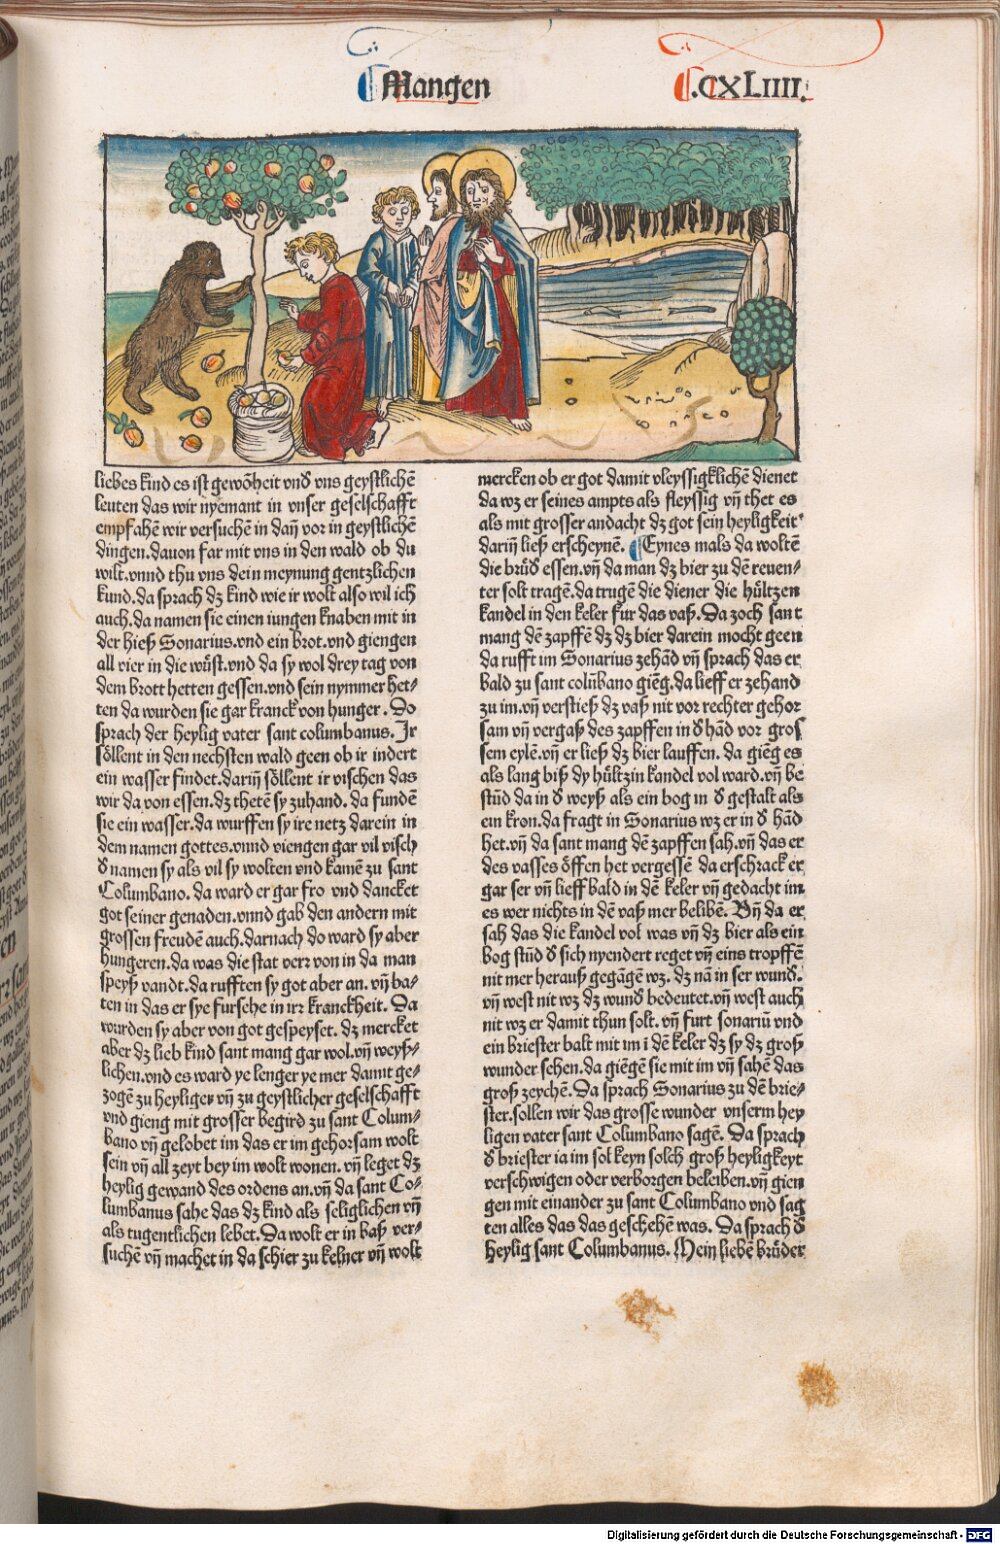 Mangen
.CXLIIII.
liebes kind es ist gewőheit vnd̕ vns geystlichē
leuten das wir nyemant in vnser geselschafft
empfahē wir versuchē in dañ vor in geystlichē
dingen.dauon far mit vns in den wald ob du
wilt.vnnd thu vns dein meynung gentzlichen
kund.da sprach dz kind wie ir wolt also wil ich
auch.da namen sie einen iungen knaben mit in
der hieß Sonarius.vnd ein brot.vnd giengen
all vier in die wüst.vnd da sy wol drey tag von
dem brott hetten gessen.vnd sein nymmer het⸗
ten da wurden sie gar kranck von hunger. Do
sprach der heylig vater sant columbanus. Ir
söllent in den nechsten wald geen ob ir indert
ein wasser findet.dariñ söllent ir vischen das
wir da von essen.dz thetē sy zuhand. da fundē
sie ein wasser.da wurffen sy ire netz darein in
dem namen gottes.vnnd viengen gar vil visch
d̕ namen sy als vil sy wolten vnd kamē zu sant
Columbano. da ward er gar fro vnd dancket
got seiner genaden.vnnd gab den andern mit
grossen freudē auch.darnach do ward sy aber
hungeren.da was die stat verr von in da man
speyß vandt.da rufften sy got aber an. vñ ba⸗
ten in das er sye fursehe in irr kranckheit. Da
wurden sy aber von got gespeyset. dz mercket
aber dz lieb kind sant mang gar wol.vñ weyß⸗
lichen.vnd es ward ye lenger ye mer damit ge⸗
zogē zu heyliger vñ zu geystlicher geselschafft
vnd gieng mit grosser begird zu sant Colum⸗
bano vñ gelobet im das er im gehorsam wolt
sein vñ all zeyt bey im wolt wonen. vñ leget dz
heylig gewand des ordens an.vñ da sant Co⸗
lumbanus sahe das dz kind als seliglichen vñ
als tugentlichen lebet.Da wolt er in baß ver⸗
suchē vñ machet in da schier zu kelner vñ wolt
mercken ob er got damit vleyssigklichē dienet
da wz er seines ampts als fleyssig vñ thet es
als mit grosser andacht dz got sein heyligkeit
dariñ ließ erscheynē. Eynes mals da woltē
die brüd̕ essen.vñ da man dz bier zu dē reuen⸗
ter solt tragē.da trugē die diener die hültzen
kandel in den keler fur das vaß. Da zoch sant
mang dē zapffē dz dz bier darein mocht geen
da rufft im Sonarius zehād vñ sprach das er
bald zu sant colūbano giēg.da lieff er zehand
zu im.vñ verstieß dz vaß nit vor rechter gehor
sam vñ vergaß des zapffen in d̕ hād vor gros
sem eylē.vñ er ließ dz bier lauffen. da giēg es
als lang biß dy hültzin kandel vol ward.vñ be
stūd da in d̕ weyß als ein bog in d̕ gestalt als
ein kron.da fragt in Sonarius wz er in d̕ hād
het.vñ da sant mang dē zapffen sah.vñ das er
des vasses öffen het vergessē da erschrack er
gar ser vñ lieff bald in dē keler vñ gedacht im
es wer nichts in dē vaß mer belibē. Vñ da er
sah das die kandel vol was vñ dz bier als ein
bog stūd d̕ sich nyendert reget vñ eins tropffē
nit mer herauß gegāgē wz. dz nā in ser wund̕.
vñ west nit wz dz wund̕ bedeutet.vñ west auch
nit wz er damit thun solt. vñ furt sonariū vnd
ein briester balt mit im ī dē keler dz sy dz groß
wunder sehen.da giēgē sie mit im vñ sahē das
groß zeychē. Da sprach Sonarius zu dē brie⸗
ster.sollen wir das grosse wunder vnserm hey
ligen vater sant Columbano sagē. Da sprach
d̕ briester ia im sol keyn solch groß heyligkeyt
verschwigen oder verborgen beleiben.vñ gien
gen mit einander zu sant Columbano vnd sag
ten alles das das geschehē was. Da sprach d̕
heylig sant Columbanus. Mein liebē brüder
Digitalisierung gefördert durch die Deutsche Forschungsgemeinschaft - DFG